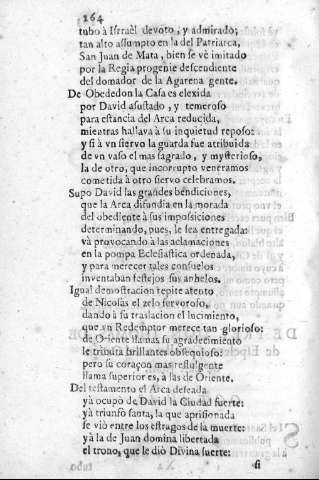 164
tubo à Israèl devoto, y admirado;
tan alto assumpto en la del Patriarca,
San Juan de Mata, bien se vè imitado
por la Regia progenie descendiente
del domador de la Agarena gente.
De Obededon la Casa es elexida
por David asustado, y temeroso
para estancia del Arca reducida,
mientras hallava à su inquietud reposo:
y si à vn siervo la guarda fue atribuida
de vn vaso el mas sagrado, y mysterioso,
la de otro, que incorrupto veneramos
cometida à otro siervo celebramos.
Supo David las grandes bendiciones,
que la Arca difundia en la morada
del obediente à sus imposiciones
determinando, pues, le sea entregada:
và provocando à las aclamaciones
en la pompa Eclesiastica ordenada,
y para merecer tales consuelos
inventaban festejos sus anhelos.
Igual demostracion repite atento
de Nicolas el zelo fervoroso,
dando à su traslacion el lucimiento,
que vn Redemptor merece tan glorioso:
de Oriente llamas su agradecimiento
le tributa brillantes obsequioso:
pero su coraçon mas resfulgente
llama superiores, à las de Oriente.
Del testamento el Arca deseada
yà ocupò de David la Ciudad fuerte:
yà triunfò santa, la que aprisionada
se viò entre los estragos de la muerte:
yà la de Juan domina libertada
el trono, que le diò Divina suerte:
si